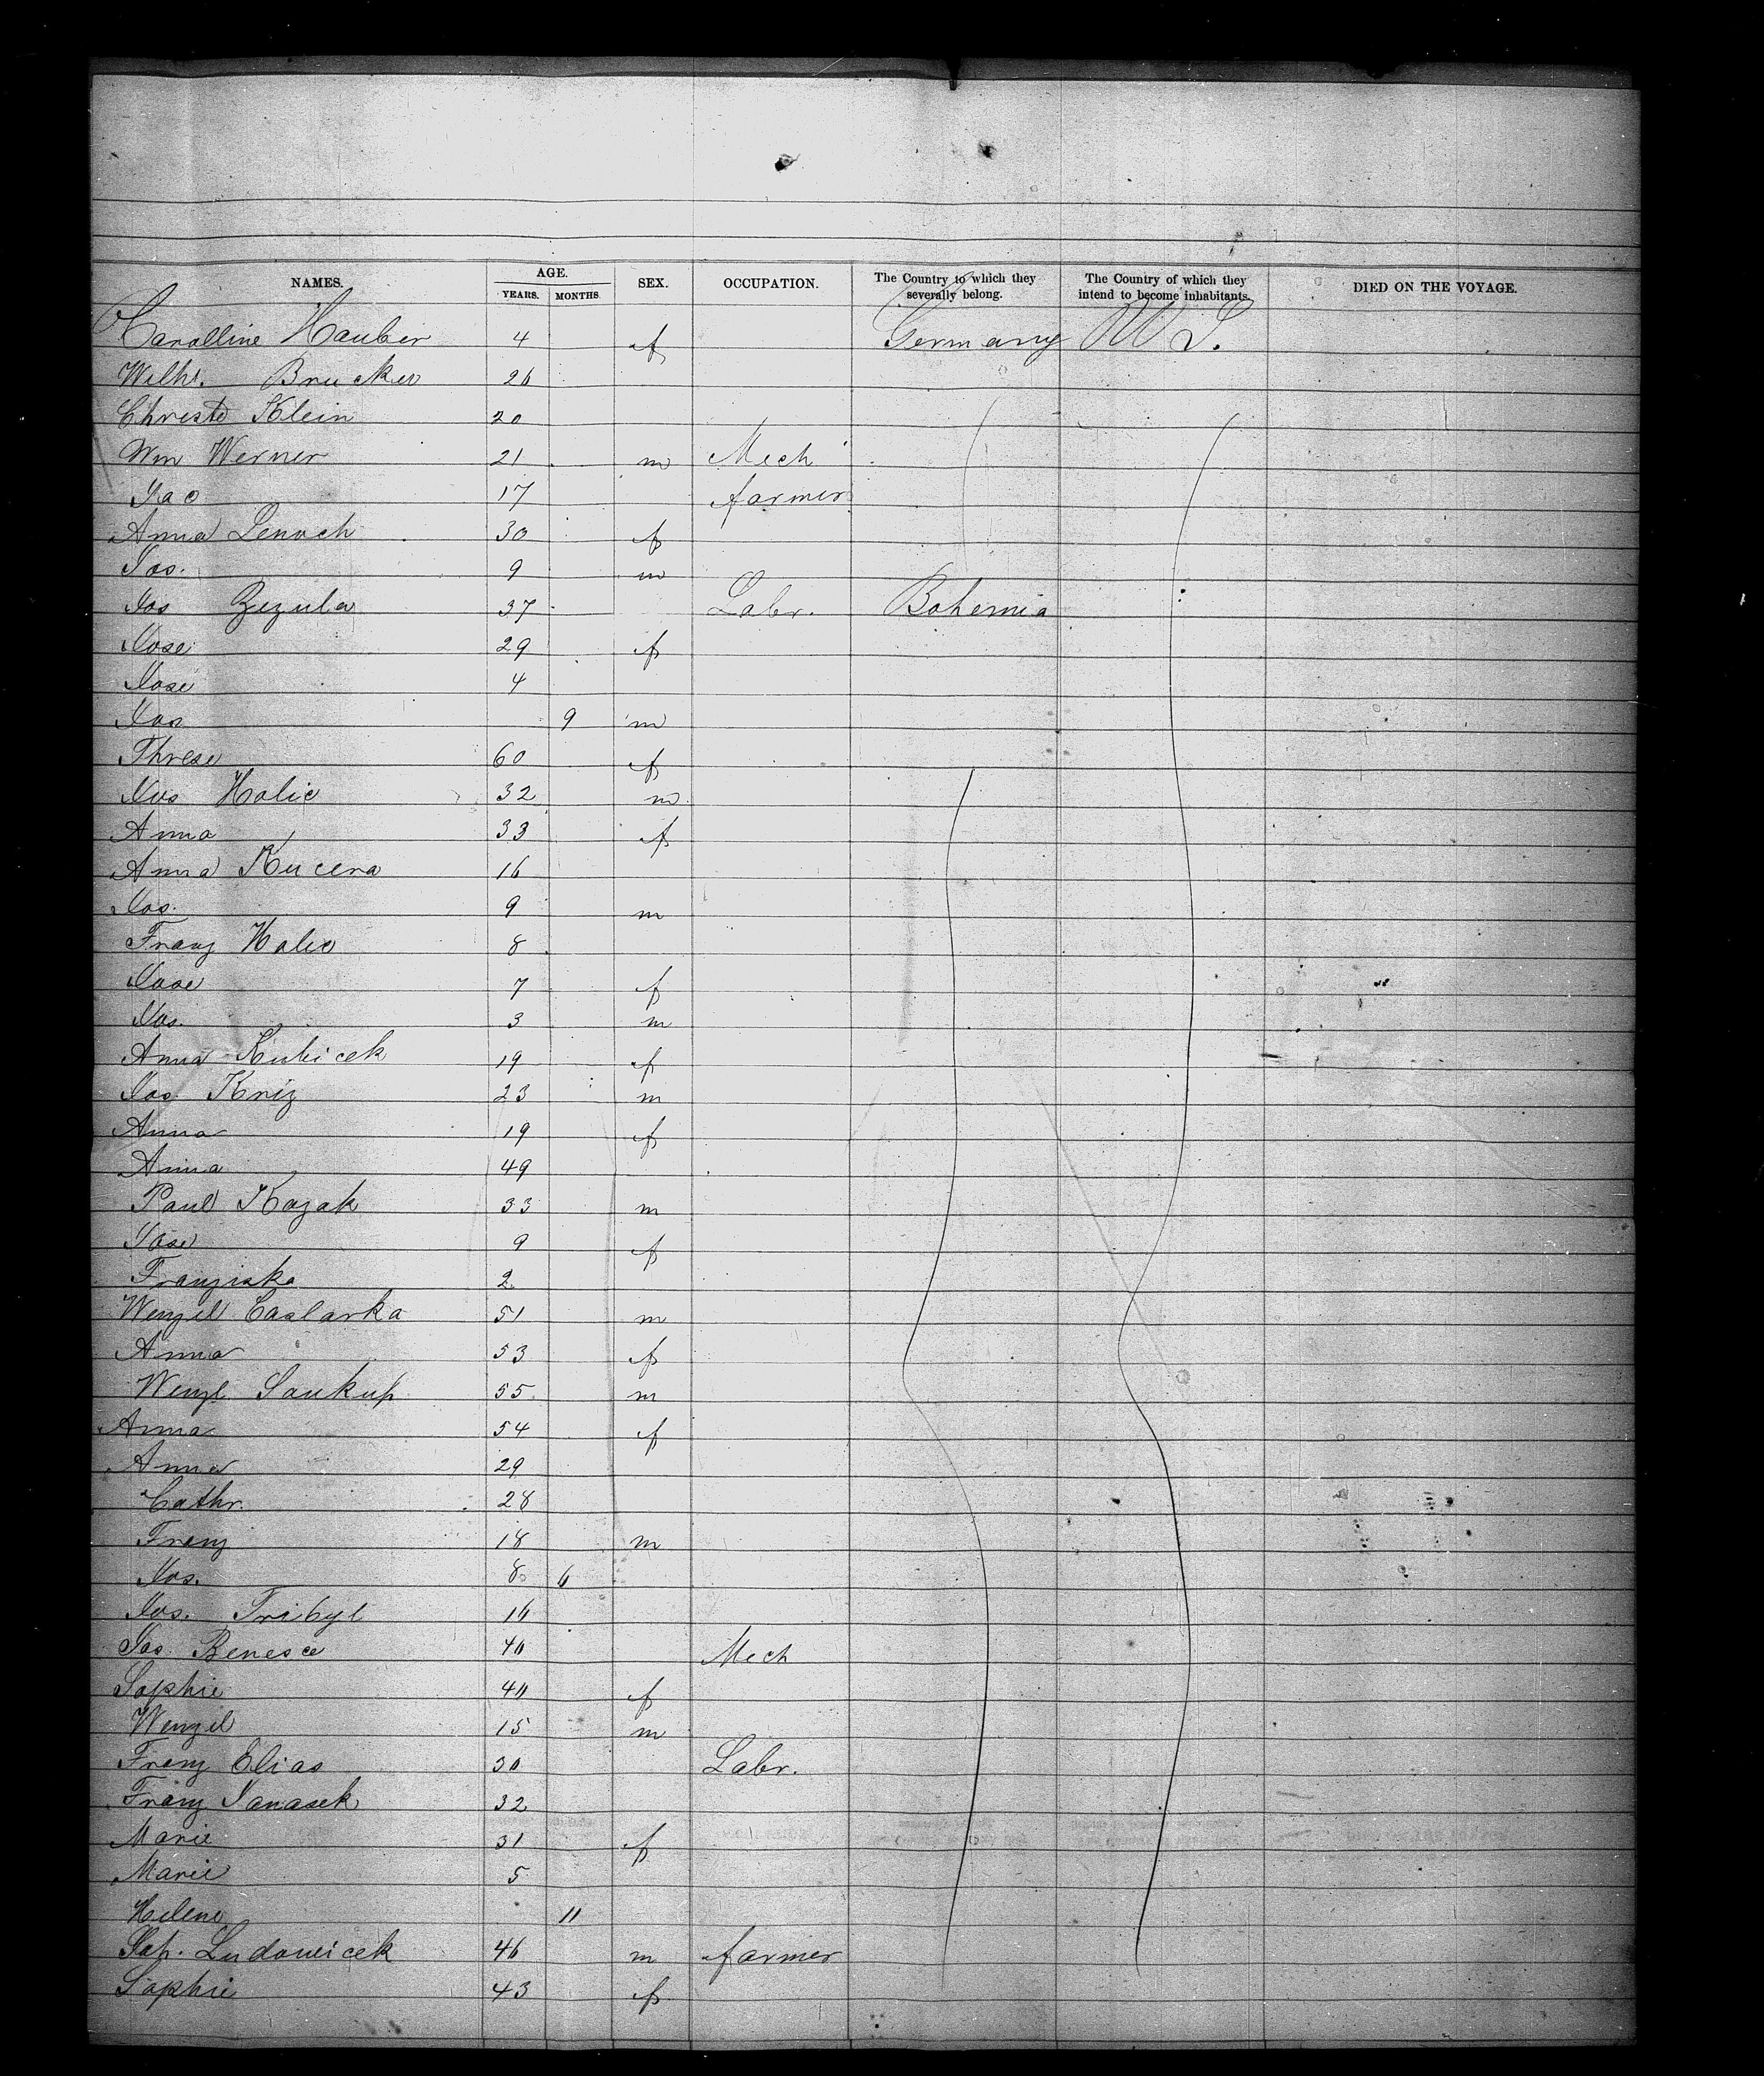 NAMES. AGE. YEARS. MONTHS. SEX. OCCUPATION. The Country to which they severally belong. The Country of which they intend to become inhabitants. DIED ON THE VOYAGE.
Carolline Hauber 4 f Germany U.S.
Wilh. Brucker 26
Christe Klein 20
Wm Werner 21 m Mech
Jac 17 farmer
Anna Lenoch 30 f
Jos. 9 m
Jos Zezula 37 Labr. Bohemia
Jose 29 f
Jose 4
Jos 9 m
Threse 60 f
Jos Holic 32 m
Anna 33 f
Anna Kucera 16
Jos. 9 m
Franz Holic 8
Jose 7 f
Jos. 3 m
Anna Kubicek 19 f
Jos. Kriz 23 m
Anna 19 f
Anna 49
Paul Kozak 33 m
Jose 9 f
Franziska 2
Wenzel Caslarka 51 m
Anna 53 f
Wenzl Soukup 55 m
Anna 54 f
Anna 29
Cathr. 28
Franz 18 m
Jos. 8 6
Jos. Tribyl 16
Jos. Benesce 40 Mech
Sophie 40 f
Wenzel 15 m
Franz Elias 30 Labr.
Franz Janasek 32
Marie 31 f
Marie 5
Helene 11
Ludowicek 46 m farmer
Sophie 43 f